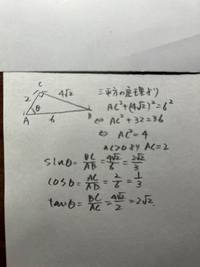 C
2
4√2
θ
A
6
B
三平方の定理より
AC²+(4√2)²=6²
⇔ AC²+32=36
⇔ AC²=4
AC>0より AC=2
sinθ=BC/AB=4√2/6=2√2/3
cosθ=AC/AB=2/6=1/3
tanθ=BC/AC=4√2/2=2√2